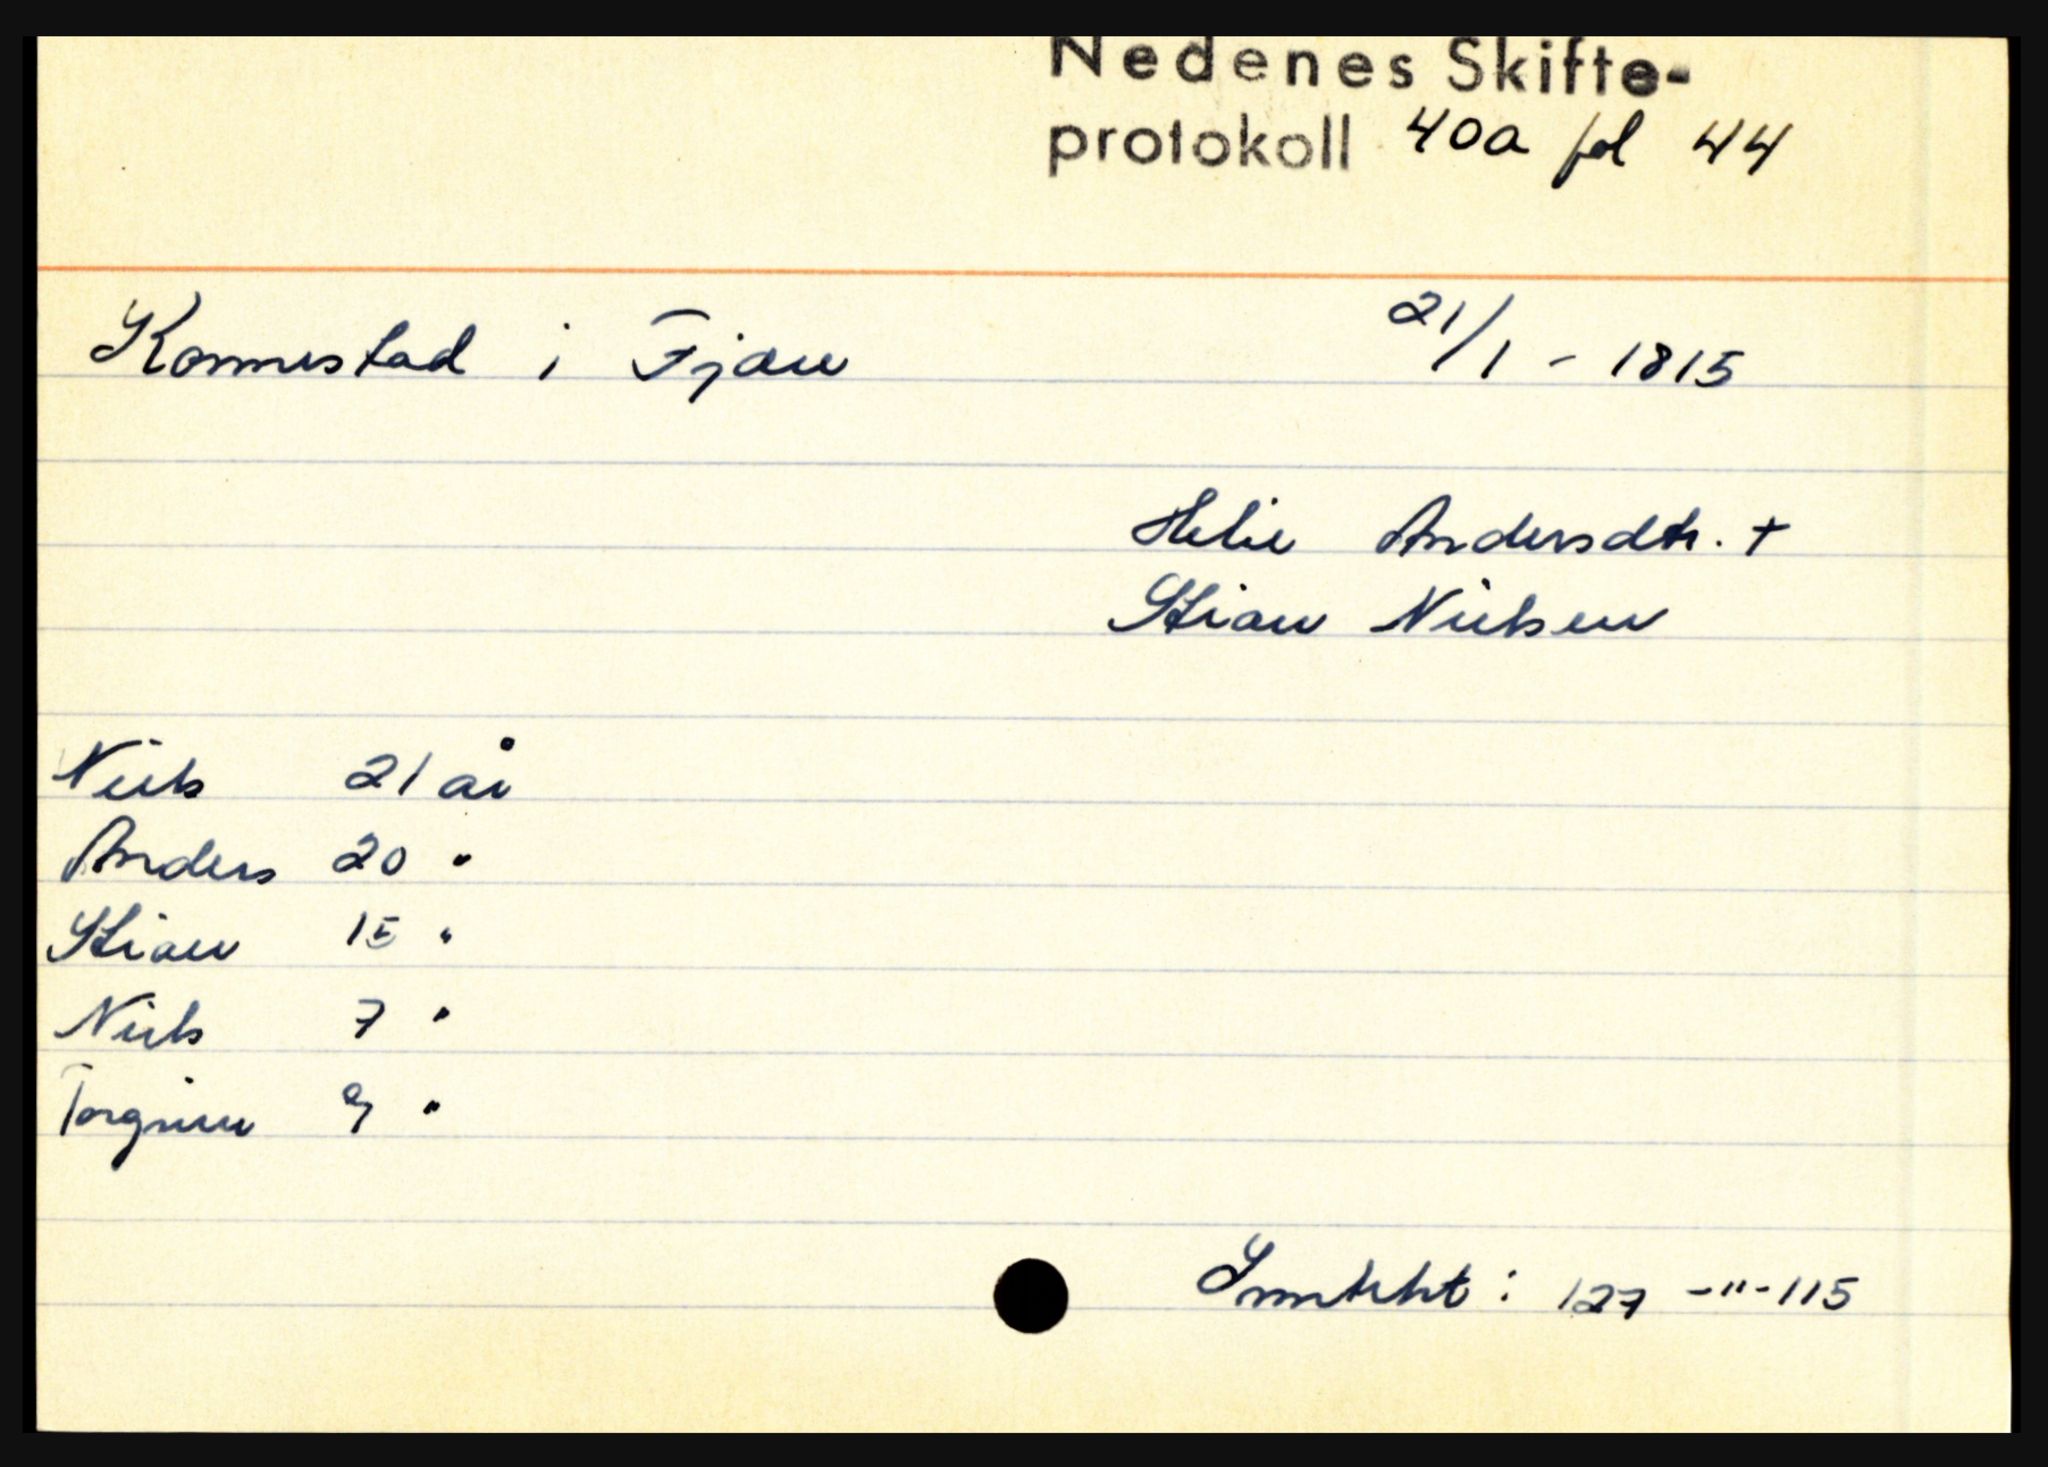 Nedenes Skifte-
protokoll 40a fol 44
Konnestad i Fjære 21/1 - 1815
Helie Andersdtr. +
Stian Nielsen
Niels 21 år
Anders 20 "
Stian 15 "
Niels 7 "
Torgrim 9 "
127 -"-115